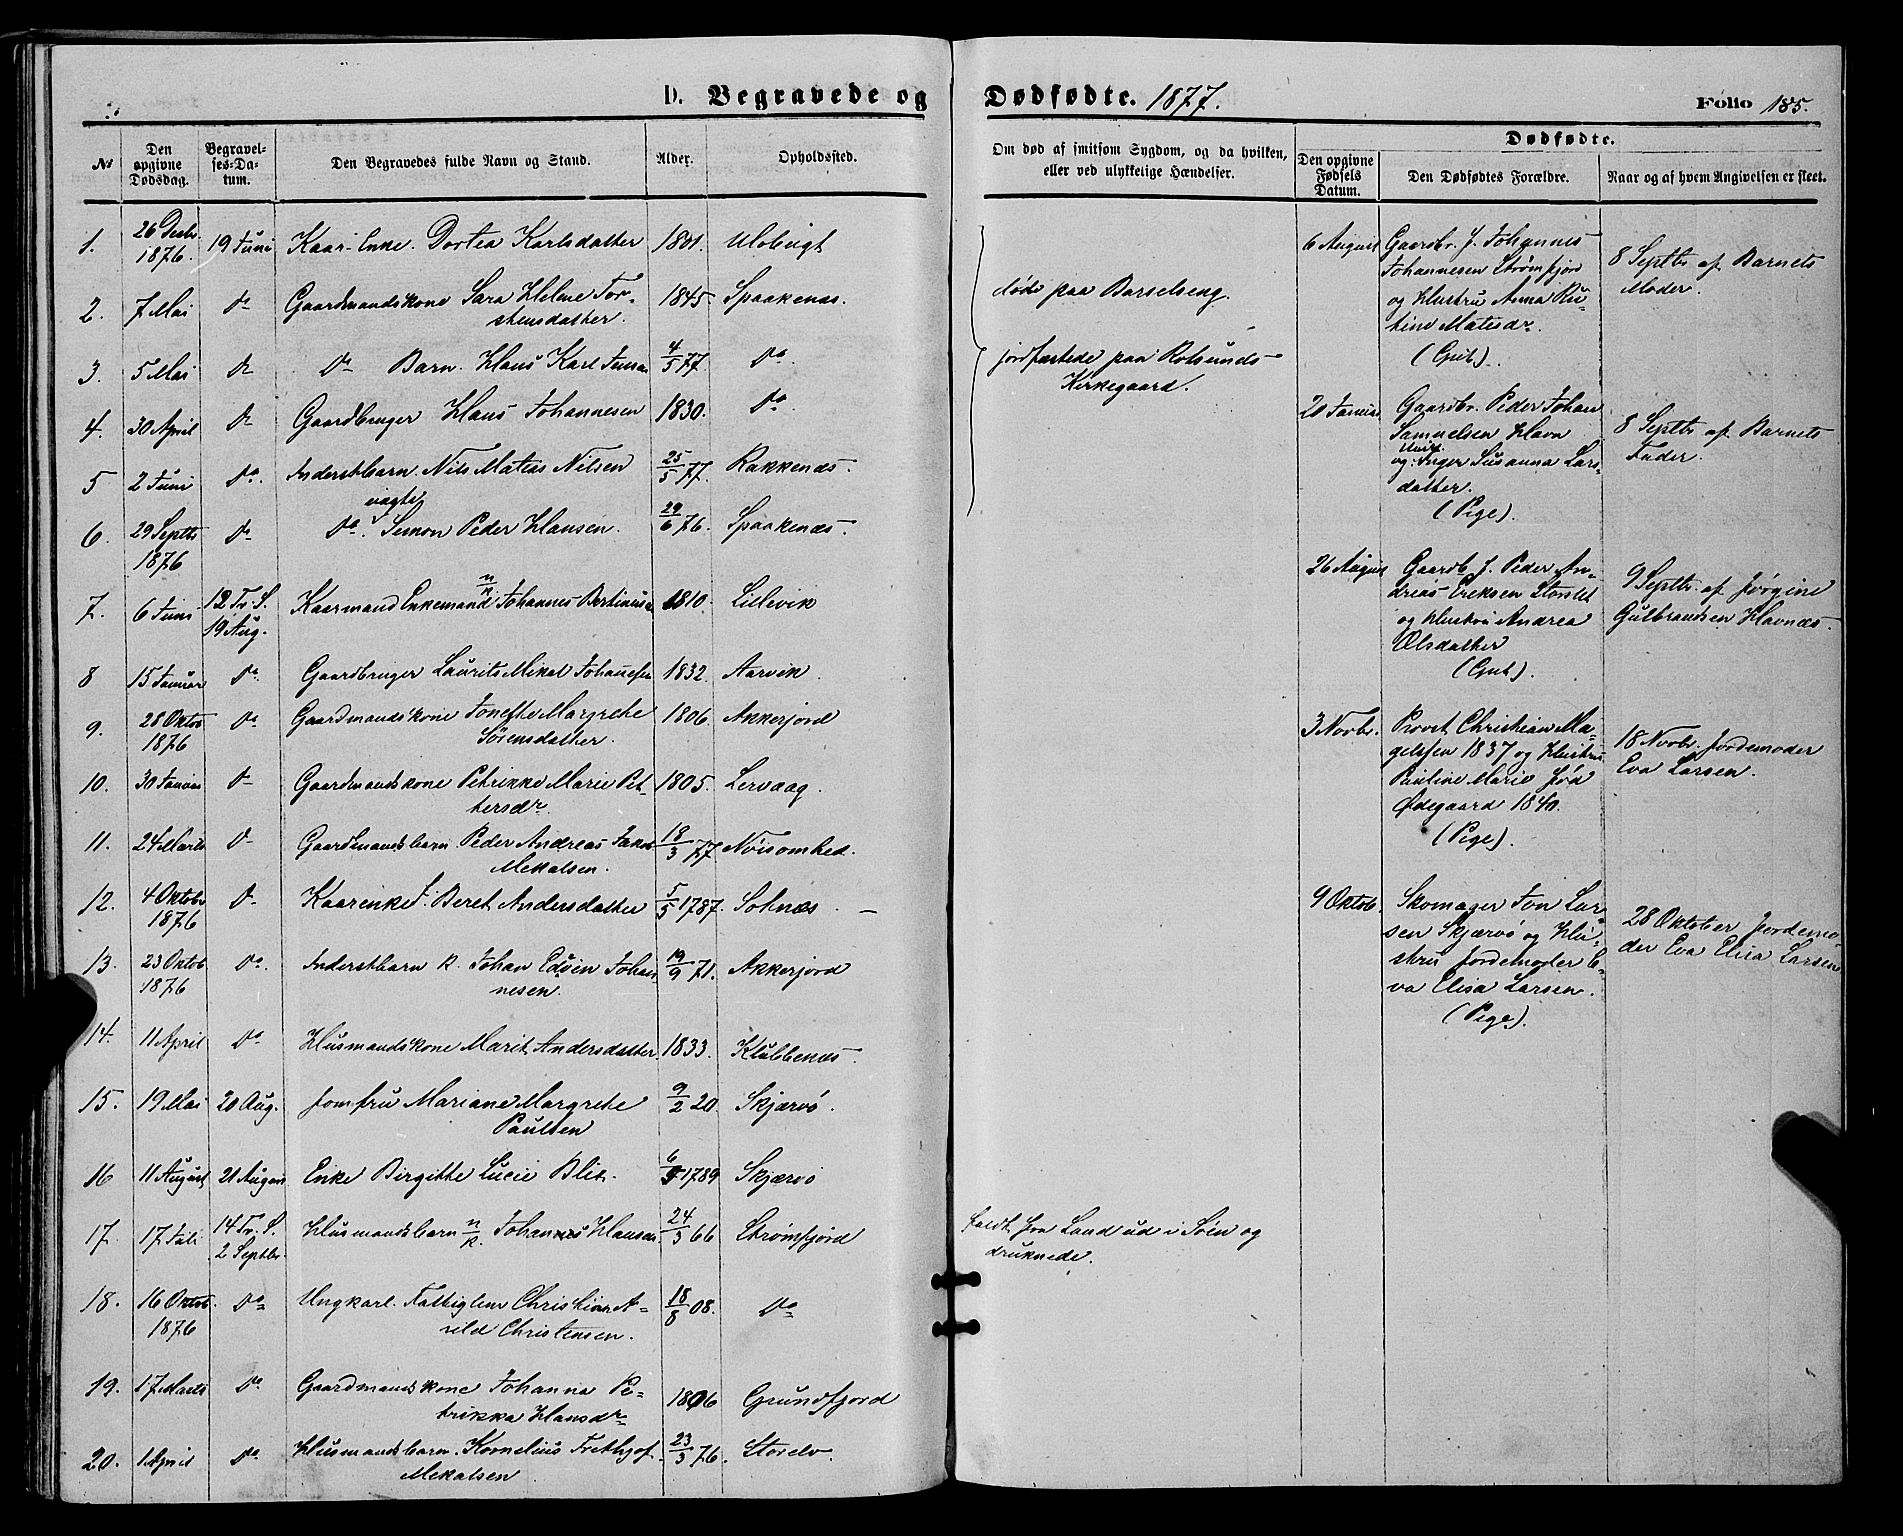 D. Begravede og Dødfødte. 1877.
Folio 185.
No
Den opgivne Dødsdag.
Begravelses-Datum.
Den Begravedes fulde Navn og Stand.
Alder.
Opholdssted.
Om død af smitsom Sygdom, og da hvilken,
eller ved ulykkelige Hændelser.
Dødfødte.
Den opgivne Fødsels Datum.
Den Dødfødtes Forældre.
Naar og af hvem Angivelsen er skeet.
1. 26 Decbr. 1876. 19 Juni Kaar-Enke. Dortea Karlsdatter 1801. Ulobugt
2. 7 Mai Do Gaardmandskone Sara Helene Tor-
stensdatter. 1845 Spaakenæs.
døde paa Barselseng.
3. 5 Mai Do Do Barn. Hans Karl Jensen 4/5 77. Do
jordfæstede paa Rotsunds
Kirkegaard.
4. 30 April Do Gaardbruger Hans Johannesen 1830. Do
5 2 Juni Do. Inderstbarn. Nils Matias Nilsen 25/5 77. Rakkenæs.
6. 29 Septbr 1876 Do Do. uægte Simon Peder Hansen. 29/6 76. Spaakenæs.
7. 6 Juni 12 Tr. S. 19 Aug. Kaarmand Enkemand n/k Johannes Bertinusen 1810. Lillevik
8 15 Januar Do. Gaardbruger Laurits Mikal Johannesen 1832. Aarvik
9. 28 Oktob 1876 Do Gaardmandskone Jonette Margrethe
Sørensdatter. 1806. Akkerfjord
10. 30 Januar D Gaardmandskone Petrikke Marie Pet-
tersdr. 1805. Lervaag.
11. 24 Marts D Gaardmandsbarn Peder Andreas Jakob
Mekalsen. 18/3 77 Nøisomhed.
12. 4 Oktobr 1876 D Kaarenke f. Beret Andersdatter 5/5 1787. Sotnæs –
13. 23 Oktob 1876 Do. Inderstbarn k. Johan Edvin Johan-
nesen. 19/9 71. Akkerfjord
14. 11 April Do Husmandskone Marit Andersdatter. 1833. Klubbenæs.
15. 19 Mai 20 Aug. Jomfru Mariane Margrethe
Paulsen 9/2 20. Skjærvø.
16 11 August 21 August Enke Birgitte Lucie Blix. 1789 Skjærvø
17. 17 Juli 14 Tr. S. 2 Septbr. Husmandsbarn n/k. Johannes Hansen. 24/3 66 Strømfjord
faldt fra Land ud i Søen og
druknede.
18. 16 Oktob. 1876 Do Ungkarl. Fattiglem Christian A-
rild Christensen. 18/8 08. Do
19. 17 Marts Do. Gaardmandskone Johanna Pe-
trikka Hansdr. 1806 Grundfjord
20. 1 April Do Husmandsbarn. Kornelius Frethjof
Mekalsen 23/3 76. Storelv.
6 August Gaardbr. J. Johannes
Johannesen Strømfjord
og Hustru Anna Ku-
tine Matisdr.
(Gut).
8 Septbr af Barnets
Moder.
20 Januar Gaardbr. Peder Johan
Samuelsen Havn
og Hust. Inger Susanna Lars-
datter.
(Pige).
8 Septbr af Barnets
Fader.
26 August Gaardb. J. Peder An-
dreas Eriksen Storslet
og Hustru Andrea
Olsdatter
(Gut).
9 Septbr. af Jørgine
Gulbrandsen Havnæs.
3 Novbr. Provst Christian Ma-
gelssen 1837 og Hustru
Pauline Marie fød
Ødegaard 1840.
(Pige).
18 Novbr. Jordemoder
Eva Larsen.
9 Oktob. Skomager Jon Lar-
sen Skjærvø og Hu-
stru Jordemoder E-
va Elisa Larsen.
(Pige).
28 Oktober Jordemo-
der Eva Elisa Larsen